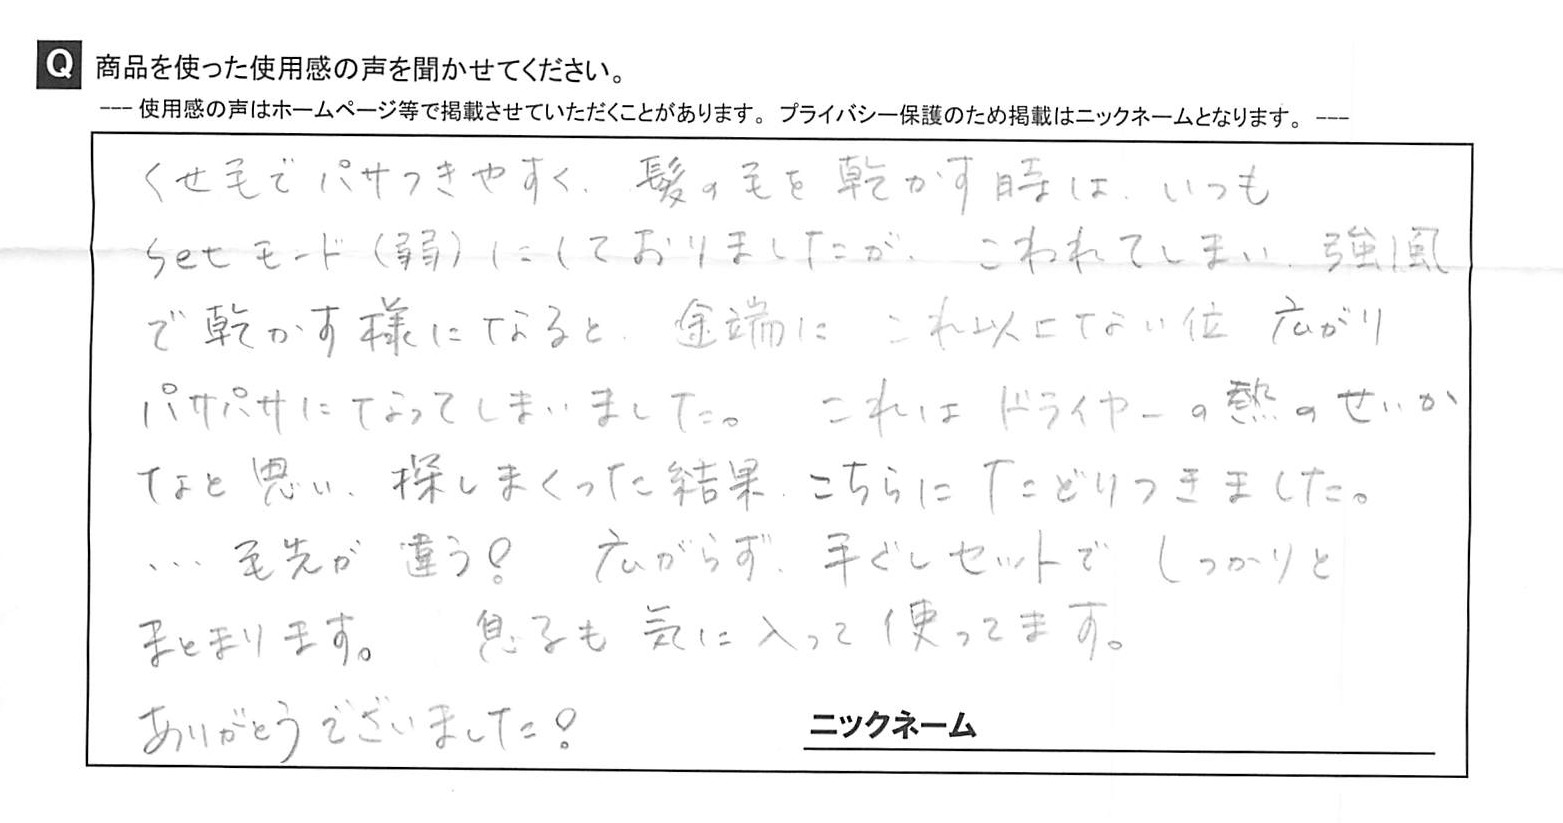 Q 商品を使った使用感の声を聞かせてください。
--- 使用感の声はホームページ等で掲載させていただくことがあります。プライバシー保護のため掲載はニックネームとなります。 ---
くせ毛でパサつきやすく、髪の毛を乾かす時は、いつも
setモード(弱)にしておりましたが、こわれてしまい、強風
で乾かす様になると、金端に これ以上ない位 広がり
パサパサになってしまいました。 これはドライヤーの熱のせいか
なと思い、探しまくった結果、こちらにたどりつきました。
…毛先が違う! 広がらず、手ぐしセットで しっかりと
まとまります。 息子も気に入って使ってます。
ありがとうございました!
ニックネーム